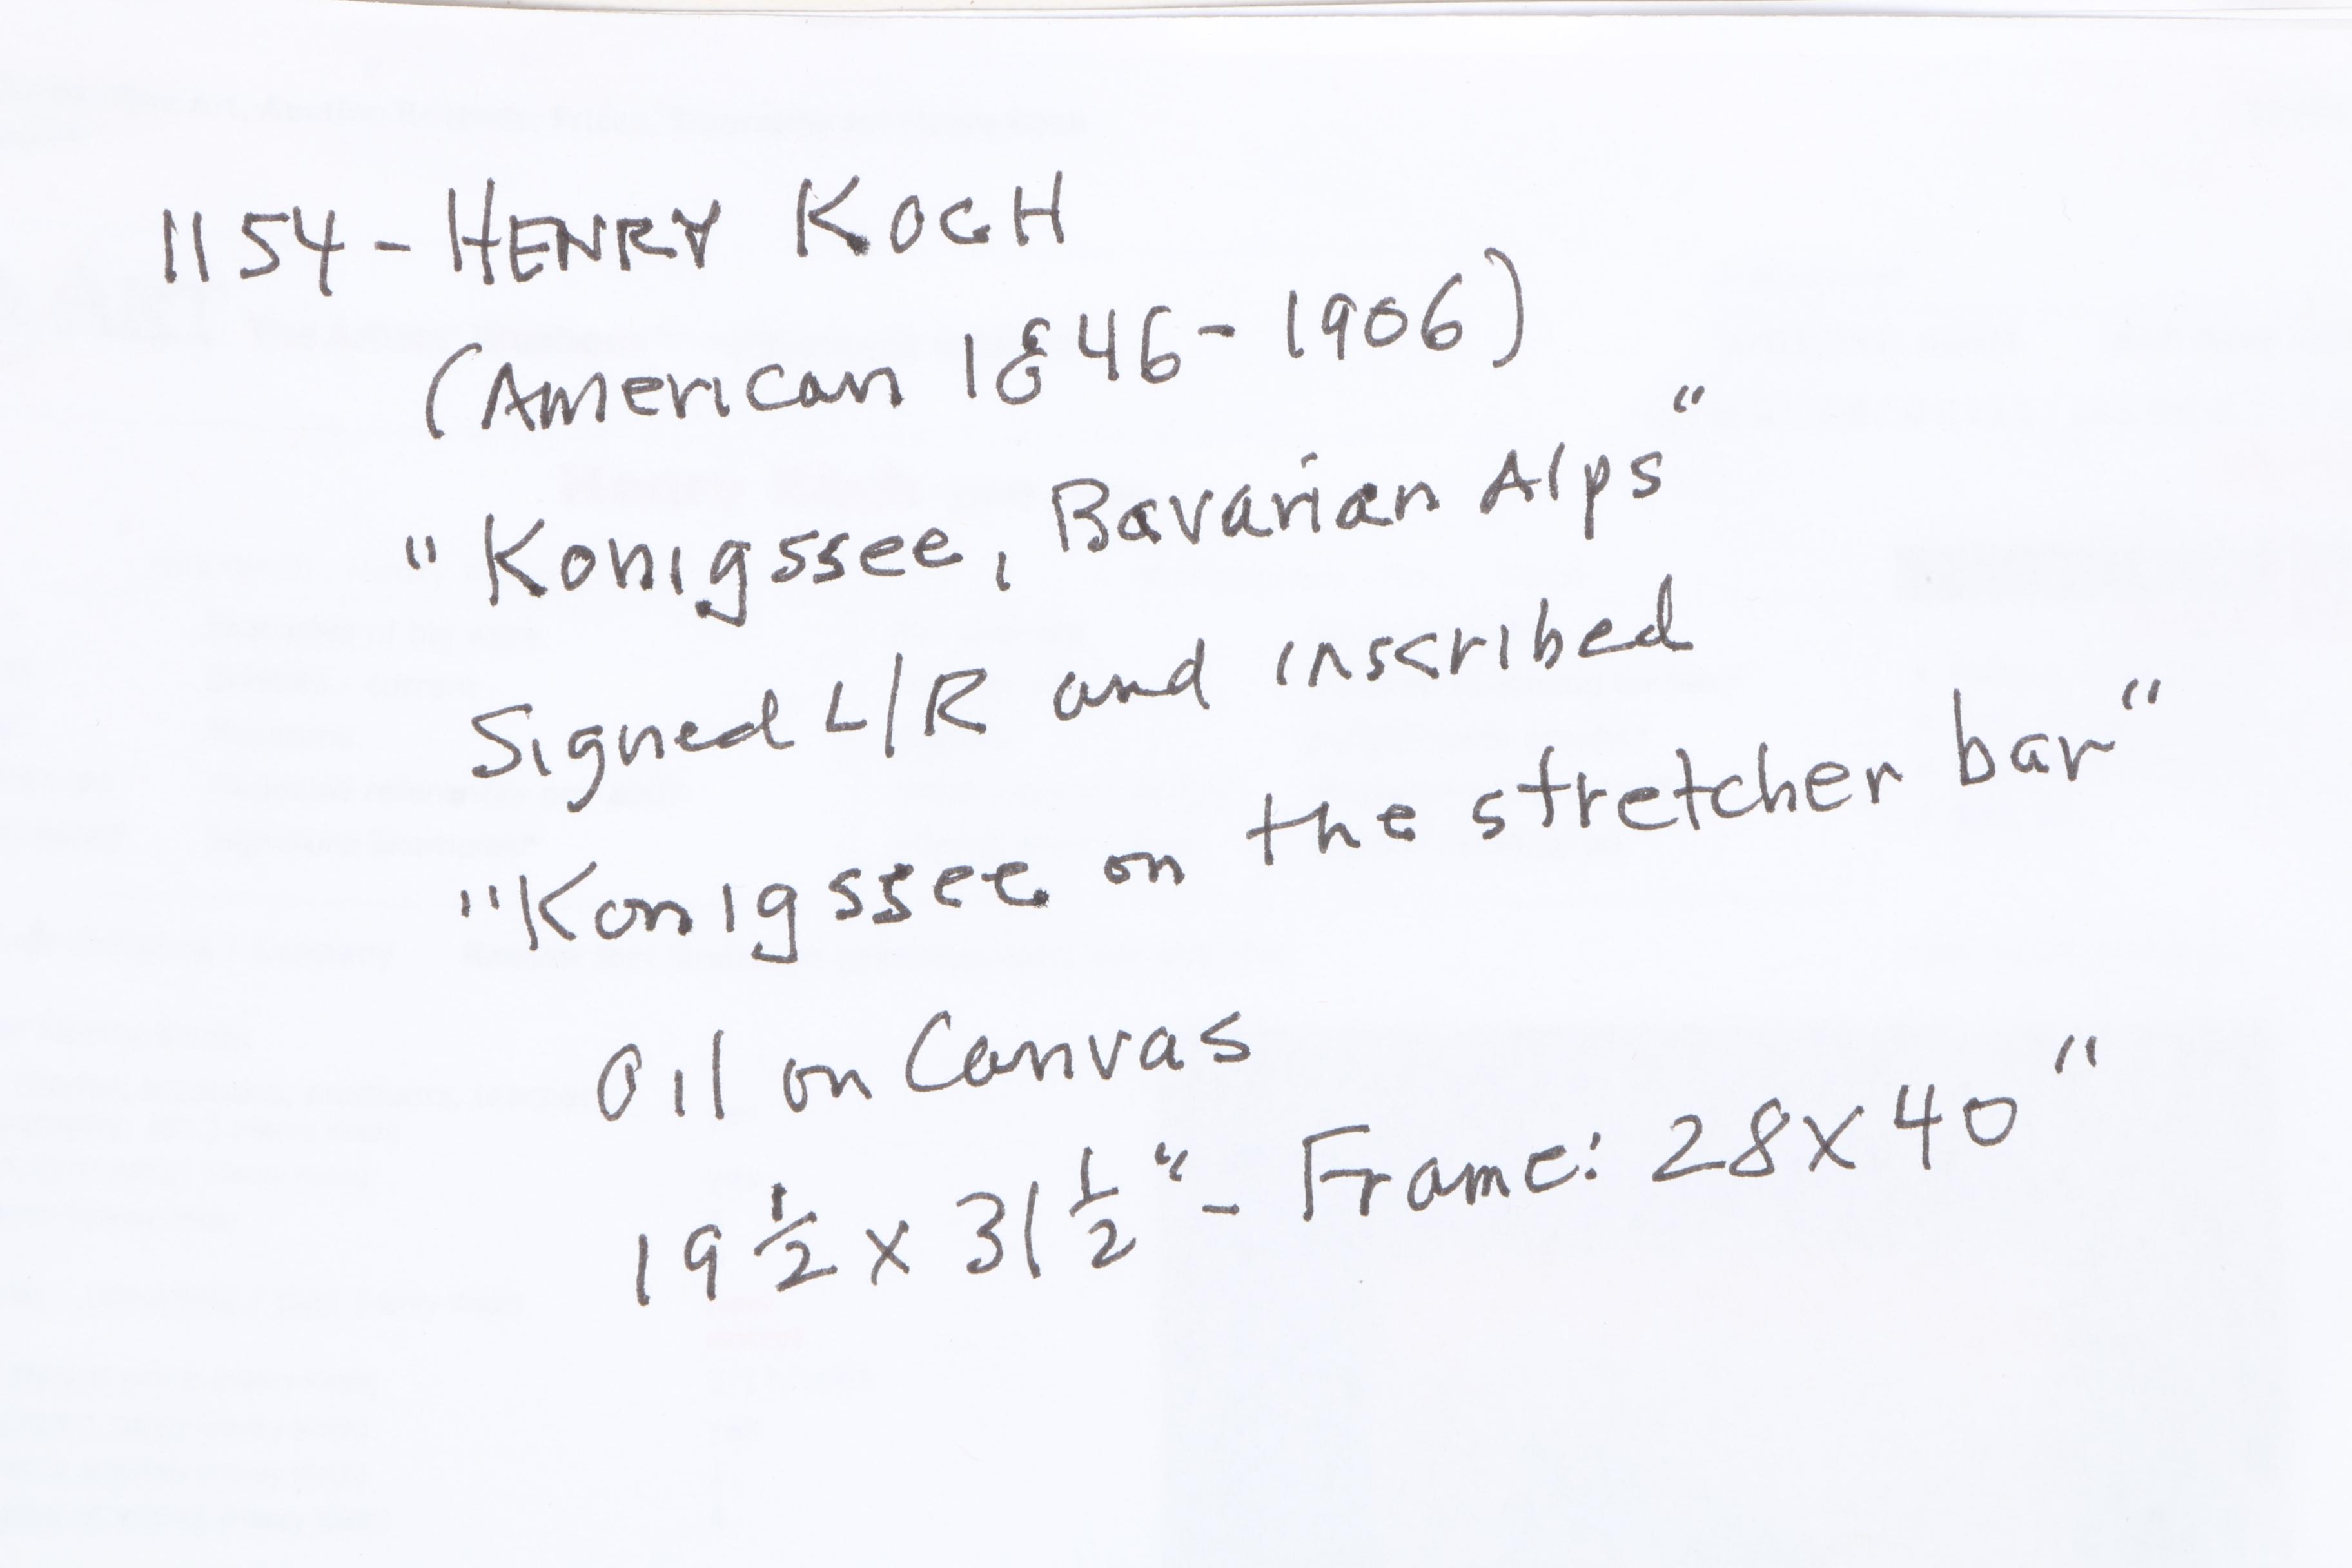 1154 - HENRY KOCH
(American 1846 - 1906)
"Konigssee, Bavarian Alps"
Signed L/R and inscribed
"Konigssee on the stretcher bar"
Oil on Canvas
19 1/2 x 31 1/2" - Frame: 28 x 40"